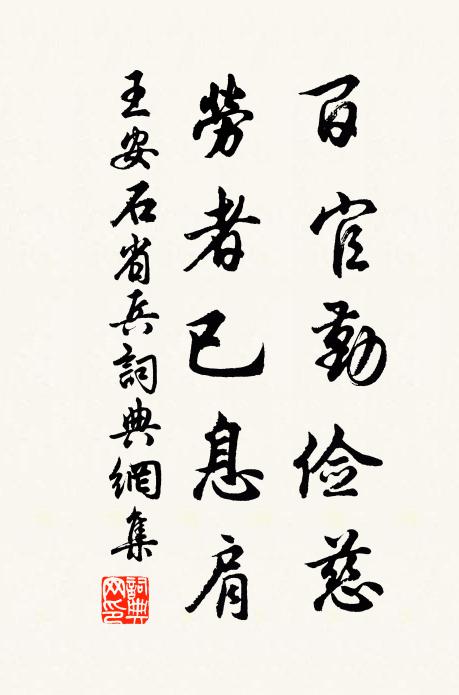 百官勤儉慈
勞者已息肩
王安石省兵詞典網集
詞典網印